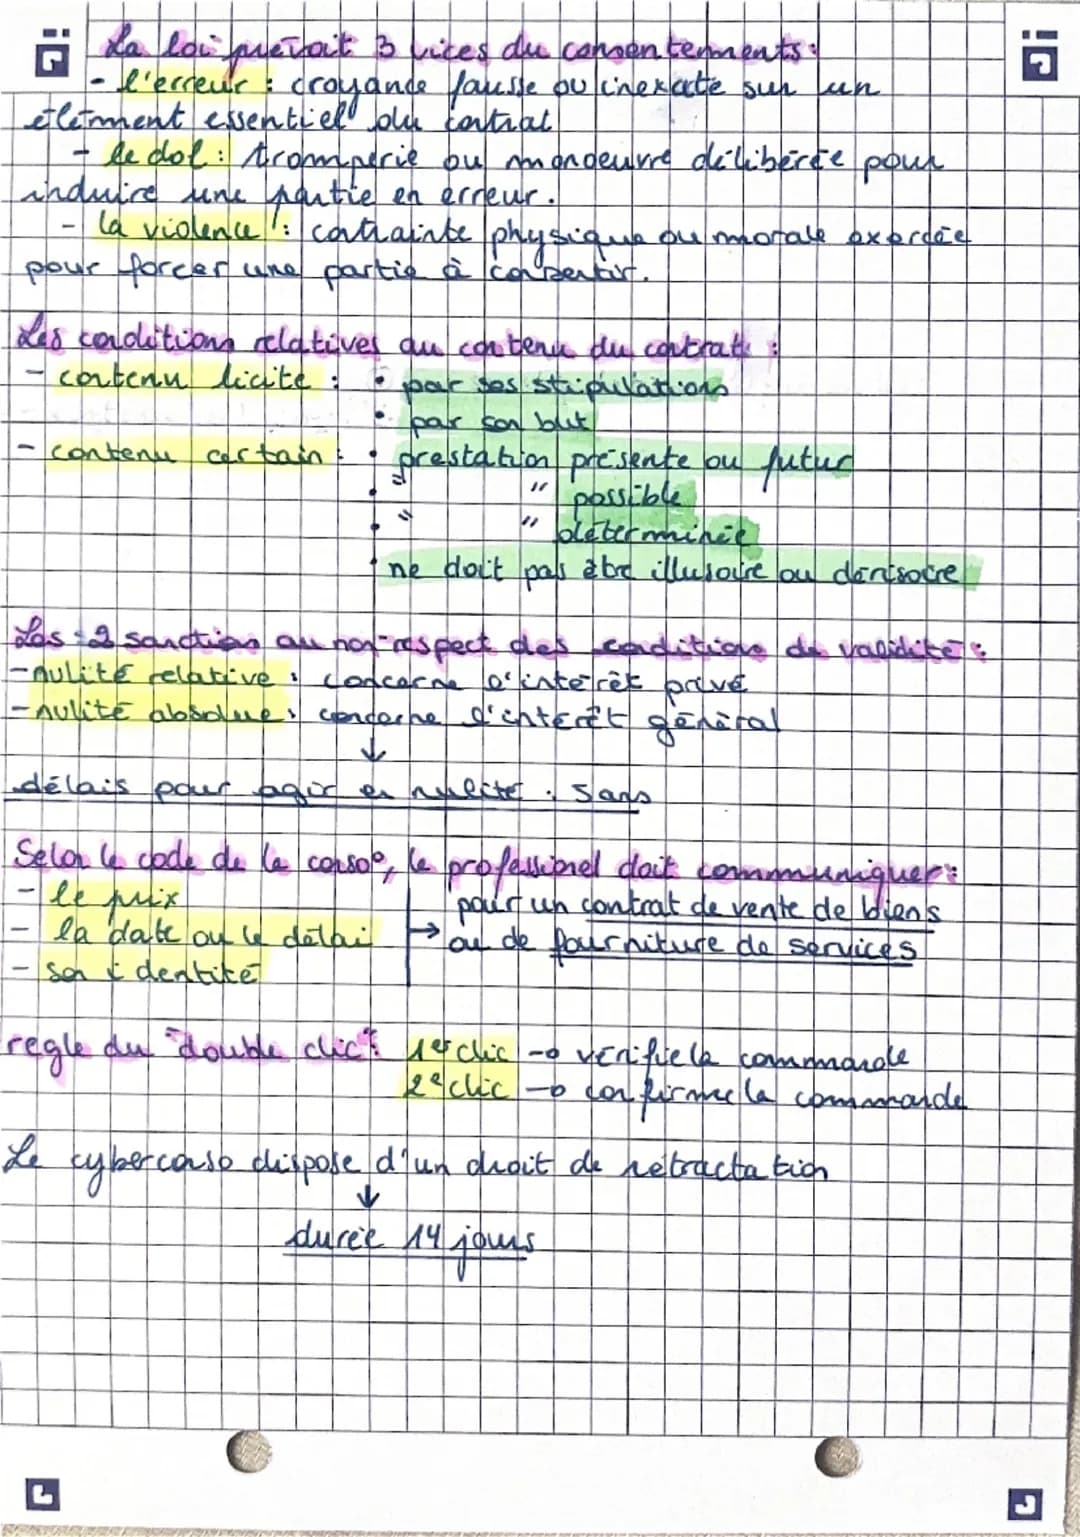 La loi prévoit 3 vices du consentements :
- l'erreur : croyance fausse ou inexacte sur un
élément essentiel du contrat
- le dol : tromperie ou manoeuvre délibérée pour
induire une partie en erreur.
- la violence : contrainte physique ou morale exercée
pour forcer une partie à consentir.
Les conditions relatives au contenu du contrat :
- contenu licite : • par ses stipulations
• par son but
- contenu certain : • prestation présente ou futur
• " " possible
• " " déterminée
• ne doit pas être illusoire ou dérisoire
Les 2 sanctions au non-respect des conditions de validité :
- nulité relative : concerne l'intérêt privé
- nulité absolue : concerne l'intérêt général
↓
délais pour agir en nulité : 5 ans
Selon le code de la conso°, le professionel doit communiquer :
- le prix
pour un contrat de vente de biens
- la date ou le délai → ou de fourniture de services
- son identité
regle du "double clic" : 1er clic → vérifie la commande
2e clic → confirme la commande
Le cyberconso dispose d'un droit de rétractation
↓
durée 14 jours